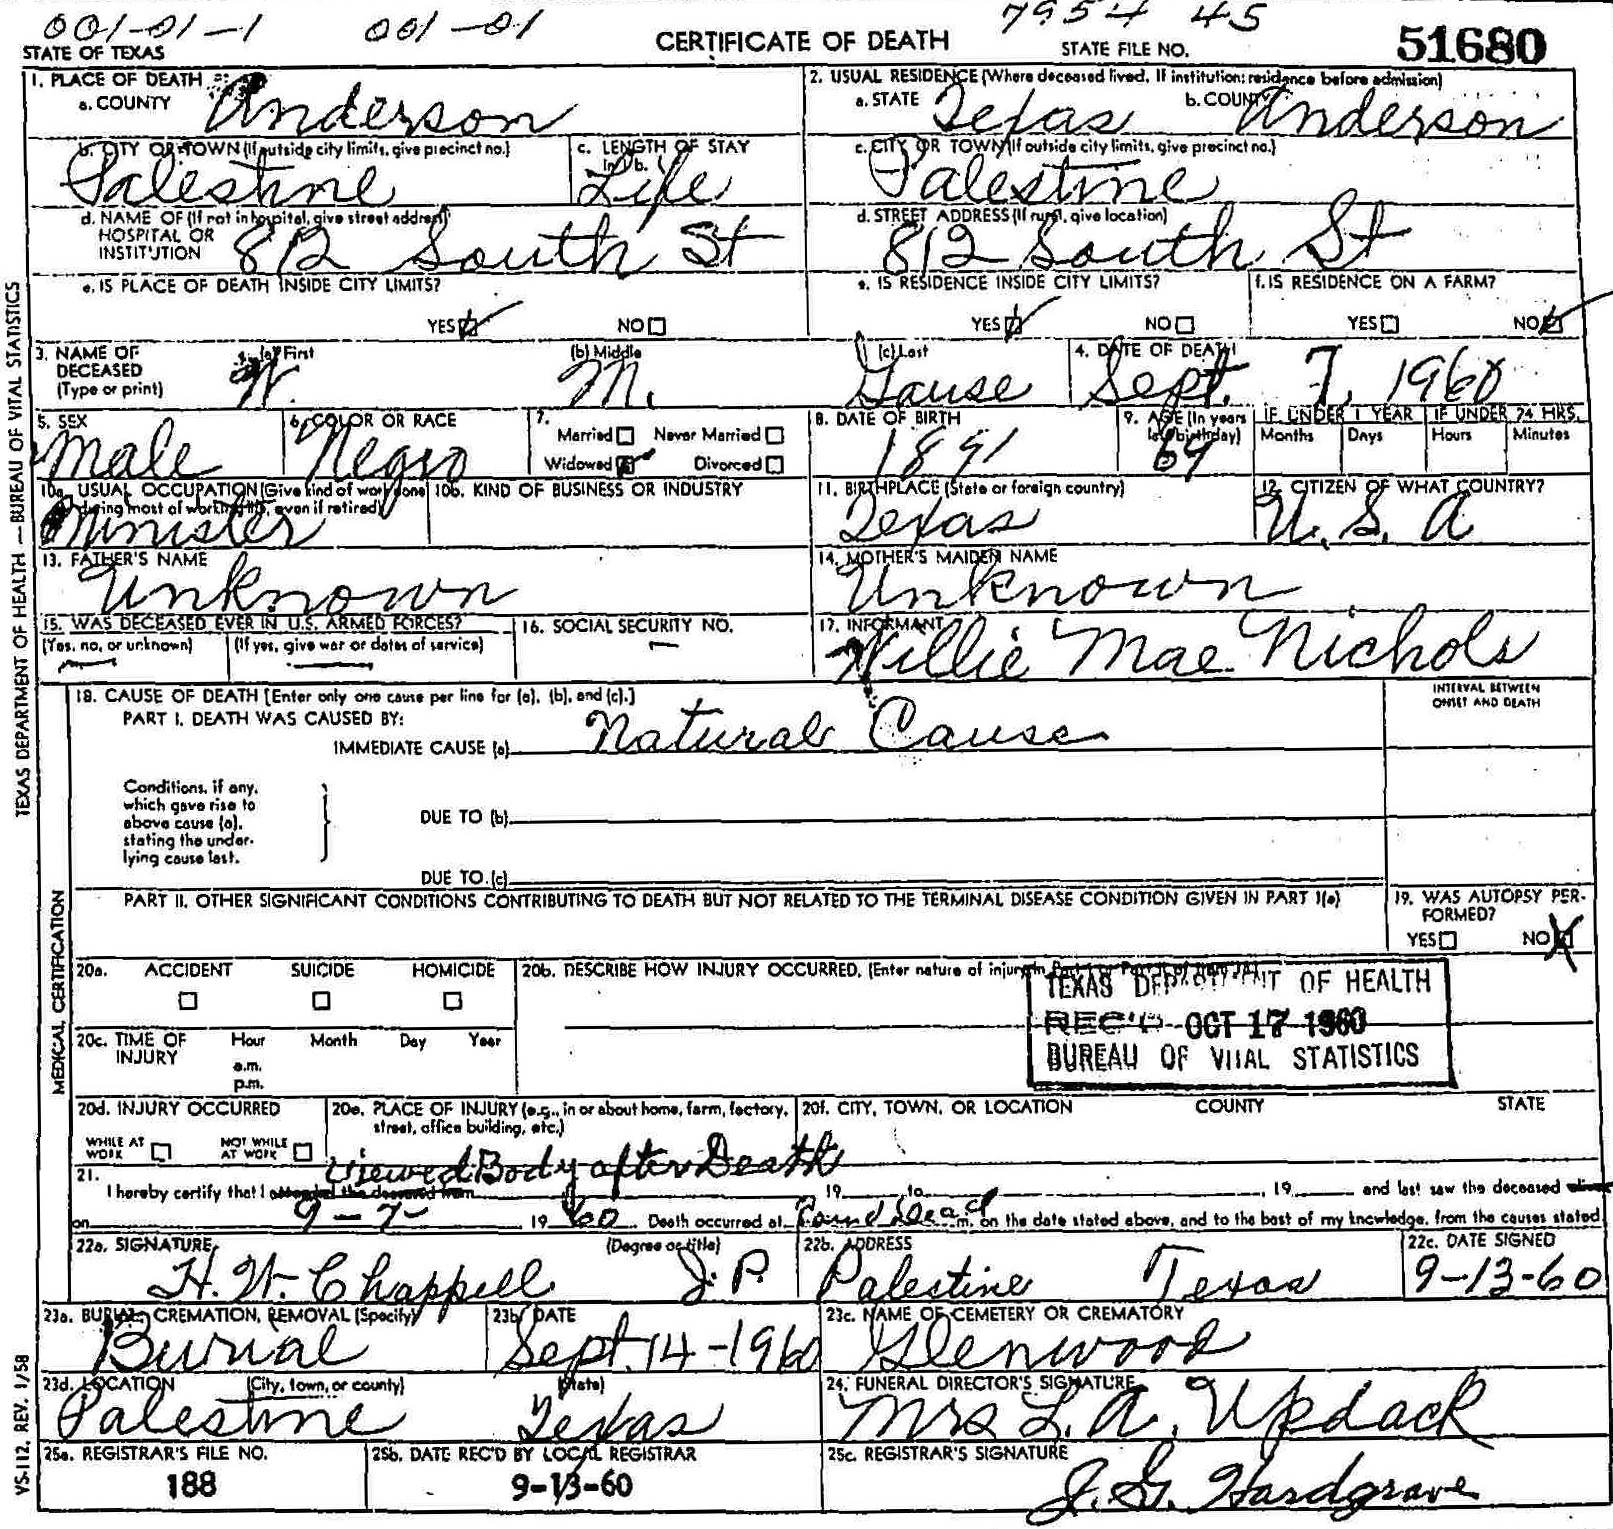 001-01-1 001-01 7954 45
STATE OF TEXAS CERTIFICATE OF DEATH STATE FILE NO. 51680
1. PLACE OF DEATH 2. USUAL RESIDENCE (Where deceased lived. If institution: residence before admission)
a. COUNTY Anderson a. STATE Texas b. COUNTY Anderson
b. CITY OR TOWN (If outside city limits, give precinct no.) c. LENGTH OF STAY in 1b. c. CITY OR TOWN (If outside city limits, give precinct no.)
Palestine Life Palestine
d. NAME OF (If not in hospital, give street address) d. STREET ADDRESS (If rural, give location)
HOSPITAL OR
INSTITUTION 812 South St 812 South St
e. IS PLACE OF DEATH INSIDE CITY LIMITS? e. IS RESIDENCE INSIDE CITY LIMITS? f. IS RESIDENCE ON A FARM?
YES NO YES NO YES NO
3. NAME OF DECEASED (Type or print) (a) First (b) Middle (c) Last 4. DATE OF DEATH
W. M. Gause Sept. 7, 1960
5. SEX 6. COLOR OR RACE 7. Married Never Married 8. DATE OF BIRTH 9. AGE (In years last birthday) IF UNDER 1 YEAR IF UNDER 24 HRS.
Months Days Hours Minutes
Male Negro Widowed Divorced 1891 69
10a. USUAL OCCUPATION (Give kind of work done during most of working life, even if retired) 10b. KIND OF BUSINESS OR INDUSTRY 11. BIRTHPLACE (State or foreign country) 12. CITIZEN OF WHAT COUNTRY?
Minister Texas U. S. A
13. FATHER'S NAME 14. MOTHER'S MAIDEN NAME
Unknown Unknown
15. WAS DECEASED EVER IN U.S. ARMED FORCES? 16. SOCIAL SECURITY NO. 17. INFORMANT
(Yes, no, or unknown) (If yes, give war or dates of service) Willie Mae Nichols
18. CAUSE OF DEATH [Enter only one cause per line for (a), (b), and (c).] INTERVAL BETWEEN ONSET AND DEATH
PART I. DEATH WAS CAUSED BY:
IMMEDIATE CAUSE (a) Natural Cause
Conditions, if any,
which gave rise to
above cause (a), DUE TO (b)
stating the under-
lying cause last.
DUE TO (c)
PART II. OTHER SIGNIFICANT CONDITIONS CONTRIBUTING TO DEATH BUT NOT RELATED TO THE TERMINAL DISEASE CONDITION GIVEN IN PART I(a) 19. WAS AUTOPSY PER-
FORMED?
YES NO
20a. ACCIDENT SUICIDE HOMICIDE 20b. DESCRIBE HOW INJURY OCCURRED. (Enter nature of injury in
TEXAS DEPARTMENT OF HEALTH
REC'D OCT 17 1960
BUREAU OF VITAL STATISTICS
20c. TIME OF INJURY Hour Month Day Year
a.m.
p.m.
20d. INJURY OCCURRED 20e. PLACE OF INJURY (e.g., in or about home, farm, factory, street, office building, etc.) 20f. CITY, TOWN, OR LOCATION COUNTY STATE
WHILE AT WORK NOT WHILE AT WORK
Viewed Body after Death
21. I hereby certify that I attended the deceased from 19 to , 19 and last saw the deceased alive
on 9-7- 19 60 Death occurred at Found Dead m. on the date stated above, and to the best of my knowledge, from the causes stated
22a. SIGNATURE (Degree or title) 22b. ADDRESS 22c. DATE SIGNED
H. W. Chappell J. P. Palestine Texas 9-13-60
23a. BURIAL, CREMATION, REMOVAL (Specify) 23b. DATE 23c. NAME OF CEMETERY OR CREMATORY
Burial Sept. 14-1960 Glenwood
23d. LOCATION (City, town, or county) (State) 24. FUNERAL DIRECTOR'S SIGNATURE
Palestine Texas Mrs L. A. Updack
25a. REGISTRAR'S FILE NO. 25b. DATE REC'D BY LOCAL REGISTRAR 25c. REGISTRAR'S SIGNATURE
188 9-13-60 J. G. Hardgrave
TEXAS DEPARTMENT OF HEALTH — BUREAU OF VITAL STATISTICS
MEDICAL CERTIFICATION
VS-112, REV. 1/58